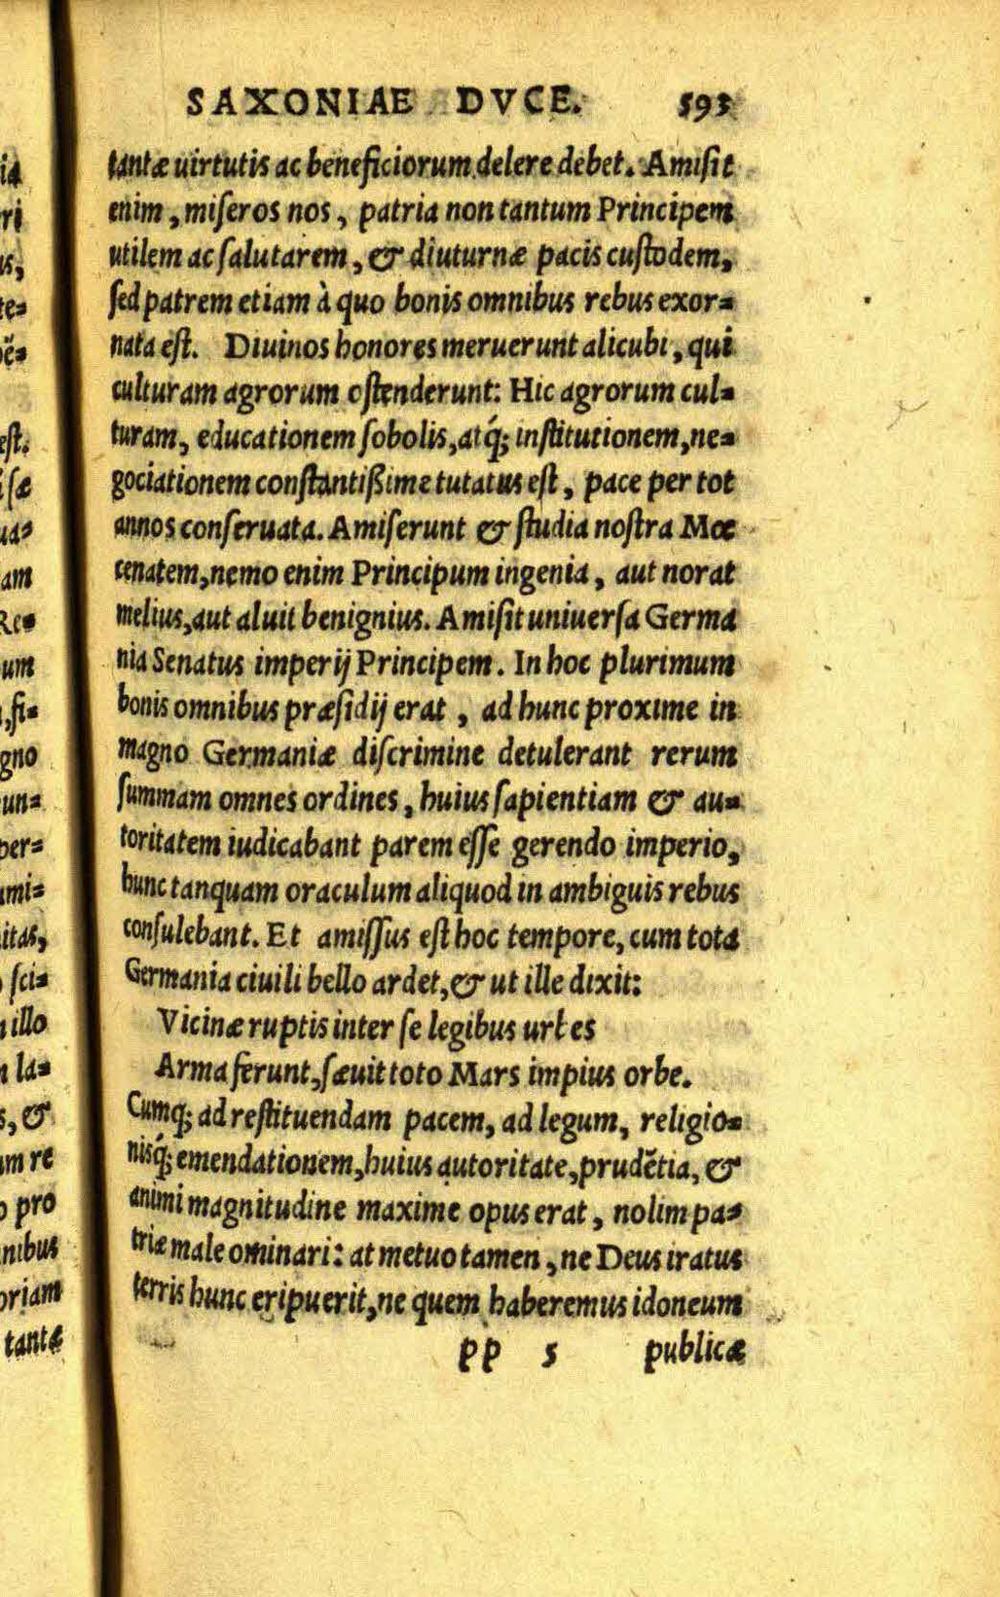 SAXONIAE DVCE. 593
tantæ uirtutis ac beneficiorum delere debet. Amisit
enim, miseros nos, patria non tantum Principem
utilem ac salutarem, & diuturnæ pacis custodem,
sed patrem etiam à quo bonis omnibus rebus exor=
nata est. Diuinos honores meruerunt alicubi, qui
culturam agrorum ostenderunt: Hic agrorum cul=
turam, educationem sobolis, atq́; institutionem, ne=
gociationem constantißime tutatus est, pace per tot
annos conseruata. Amiserunt & studia nostra Moe
cenatem, nemo enim Principum ingenia, aut norat
melius, aut aluit benignius. Amisit uniuersa Germa
nia Senatus imperij Principem. In hoc plurimum
bonis omnibus præsidij erat, ad hunc proxime in
magno Germaniæ discrimine detulerant rerum
summam omnes ordines, huius sapientiam & au=
toritatem iudicabant parem esse gerendo imperio,
hunc tanquam oraculum aliquod in ambiguis rebus
consulebant. Et amissus est hoc tempore, cum tota
Germania ciuili bello ardet, & ut ille dixit:
Vicinæ ruptis inter se legibus urbes
Arma ferunt, sæuit toto Mars impius orbe.
Cumq; ad restituendam pacem, ad legum, religio=
nisq́; emendationem, huius autoritate, prudẽtia, &
animi magnitudine maxime opus erat, nolim pa=
triæ male ominari: at metuo tamen, ne Deus iratus
terris hunc eripuerit, ne quem haberemus idoneum
PP 5 publicæ